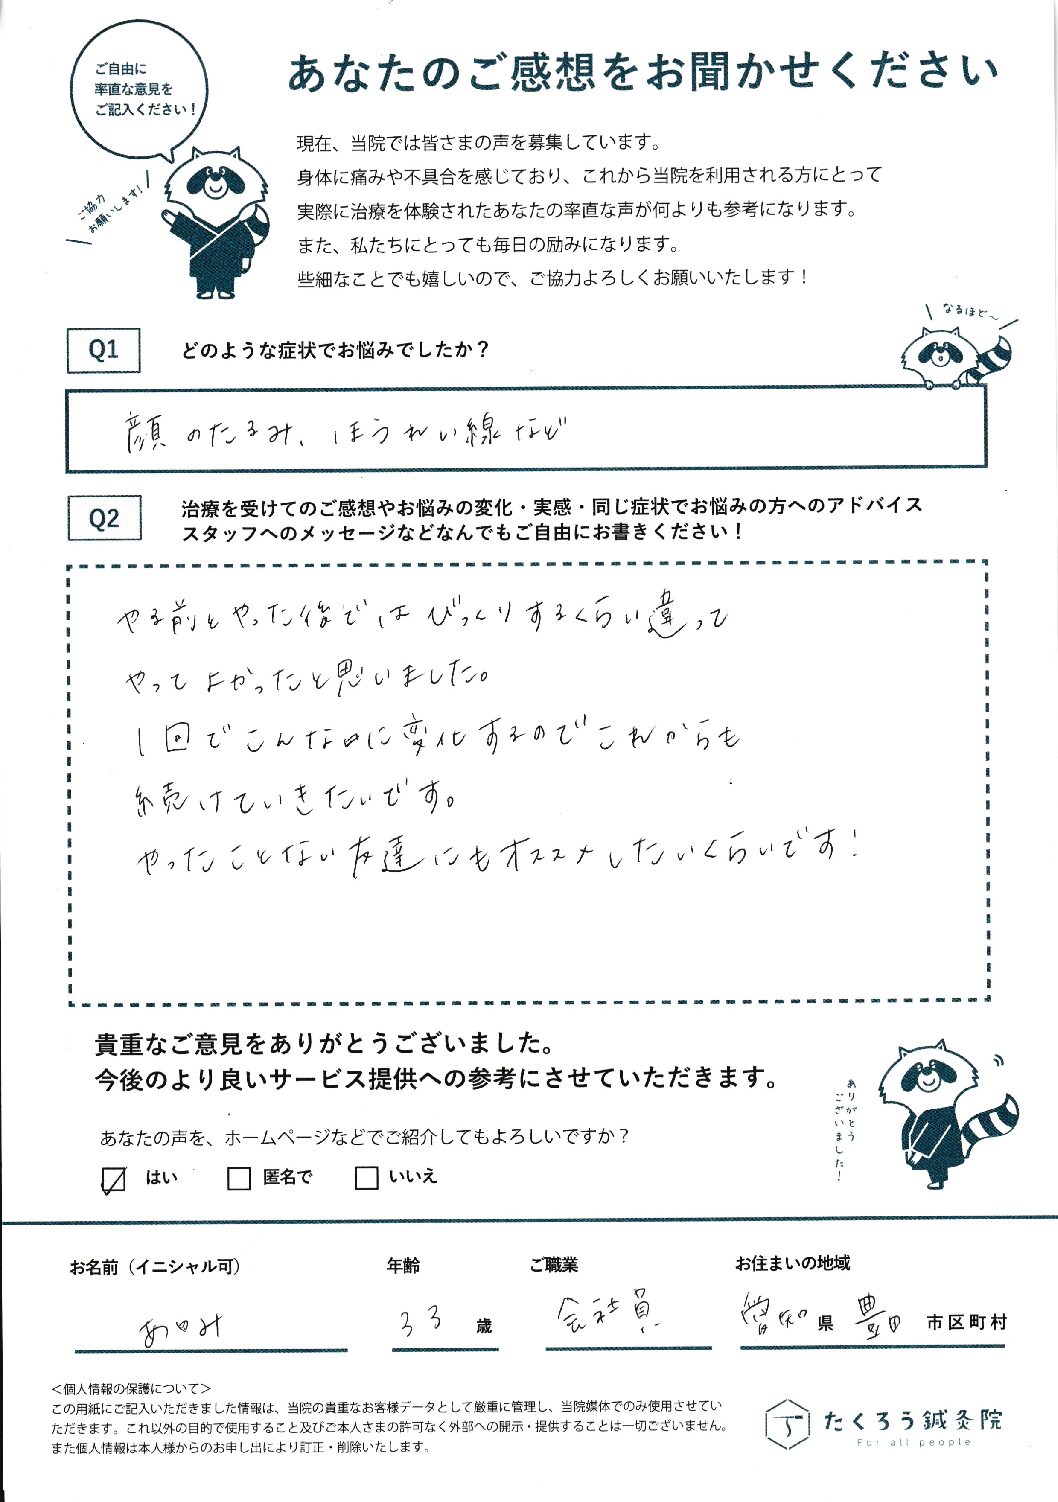 ご自由に
率直な意見を
ご記入ください!
あなたのご感想をお聞かせください
ご協力
お願いします!
現在、当院では皆さまの声を募集しています。
身体に痛みや不具合を感じており、これから当院を利用される方にとって
実際に治療を体験されたあなたの率直な声が何よりも参考になります。
また、私たちにとっても毎日の励みになります。
些細なことでも嬉しいので、ご協力よろしくお願いいたします!
なるほど〜
Q1 どのような症状でお悩みでしたか?
顔のたるみ、ほうれい線など
Q2 治療を受けてのご感想やお悩みの変化・実感・同じ症状でお悩みの方へのアドバイス
スタッフへのメッセージなどなんでもご自由にお書きください!
やる前とやった後ではびっくりするくらい違って
やってよかったと思いました。
1回でこんなのに変化するのでこれからも
続けていきたいです。
やったことない友達にもオススメしたいくらいです!
貴重なご意見をありがとうございました。
今後のより良いサービス提供への参考にさせていただきます。
ありがとう
ございました!
あなたの声を、ホームページなどでご紹介してもよろしいですか?
はい 匿名で いいえ
お名前(イニシャル可) 年齢 ご職業 お住まいの地域
あゆみ 33 歳 会社員 愛知 県 豊田 市区町村
<個人情報の保護について>
この用紙にご記入いただきました情報は、当院の貴重なお客様データとして厳重に管理し、当院媒体でのみ使用させてい
ただきます。これ以外の目的で使用すること及びご本人さまの許可なく外部への開示・提供することは一切ございません。
また個人情報は本人様からのお申し出により訂正・削除いたします。
たくろう鍼灸院
For all people